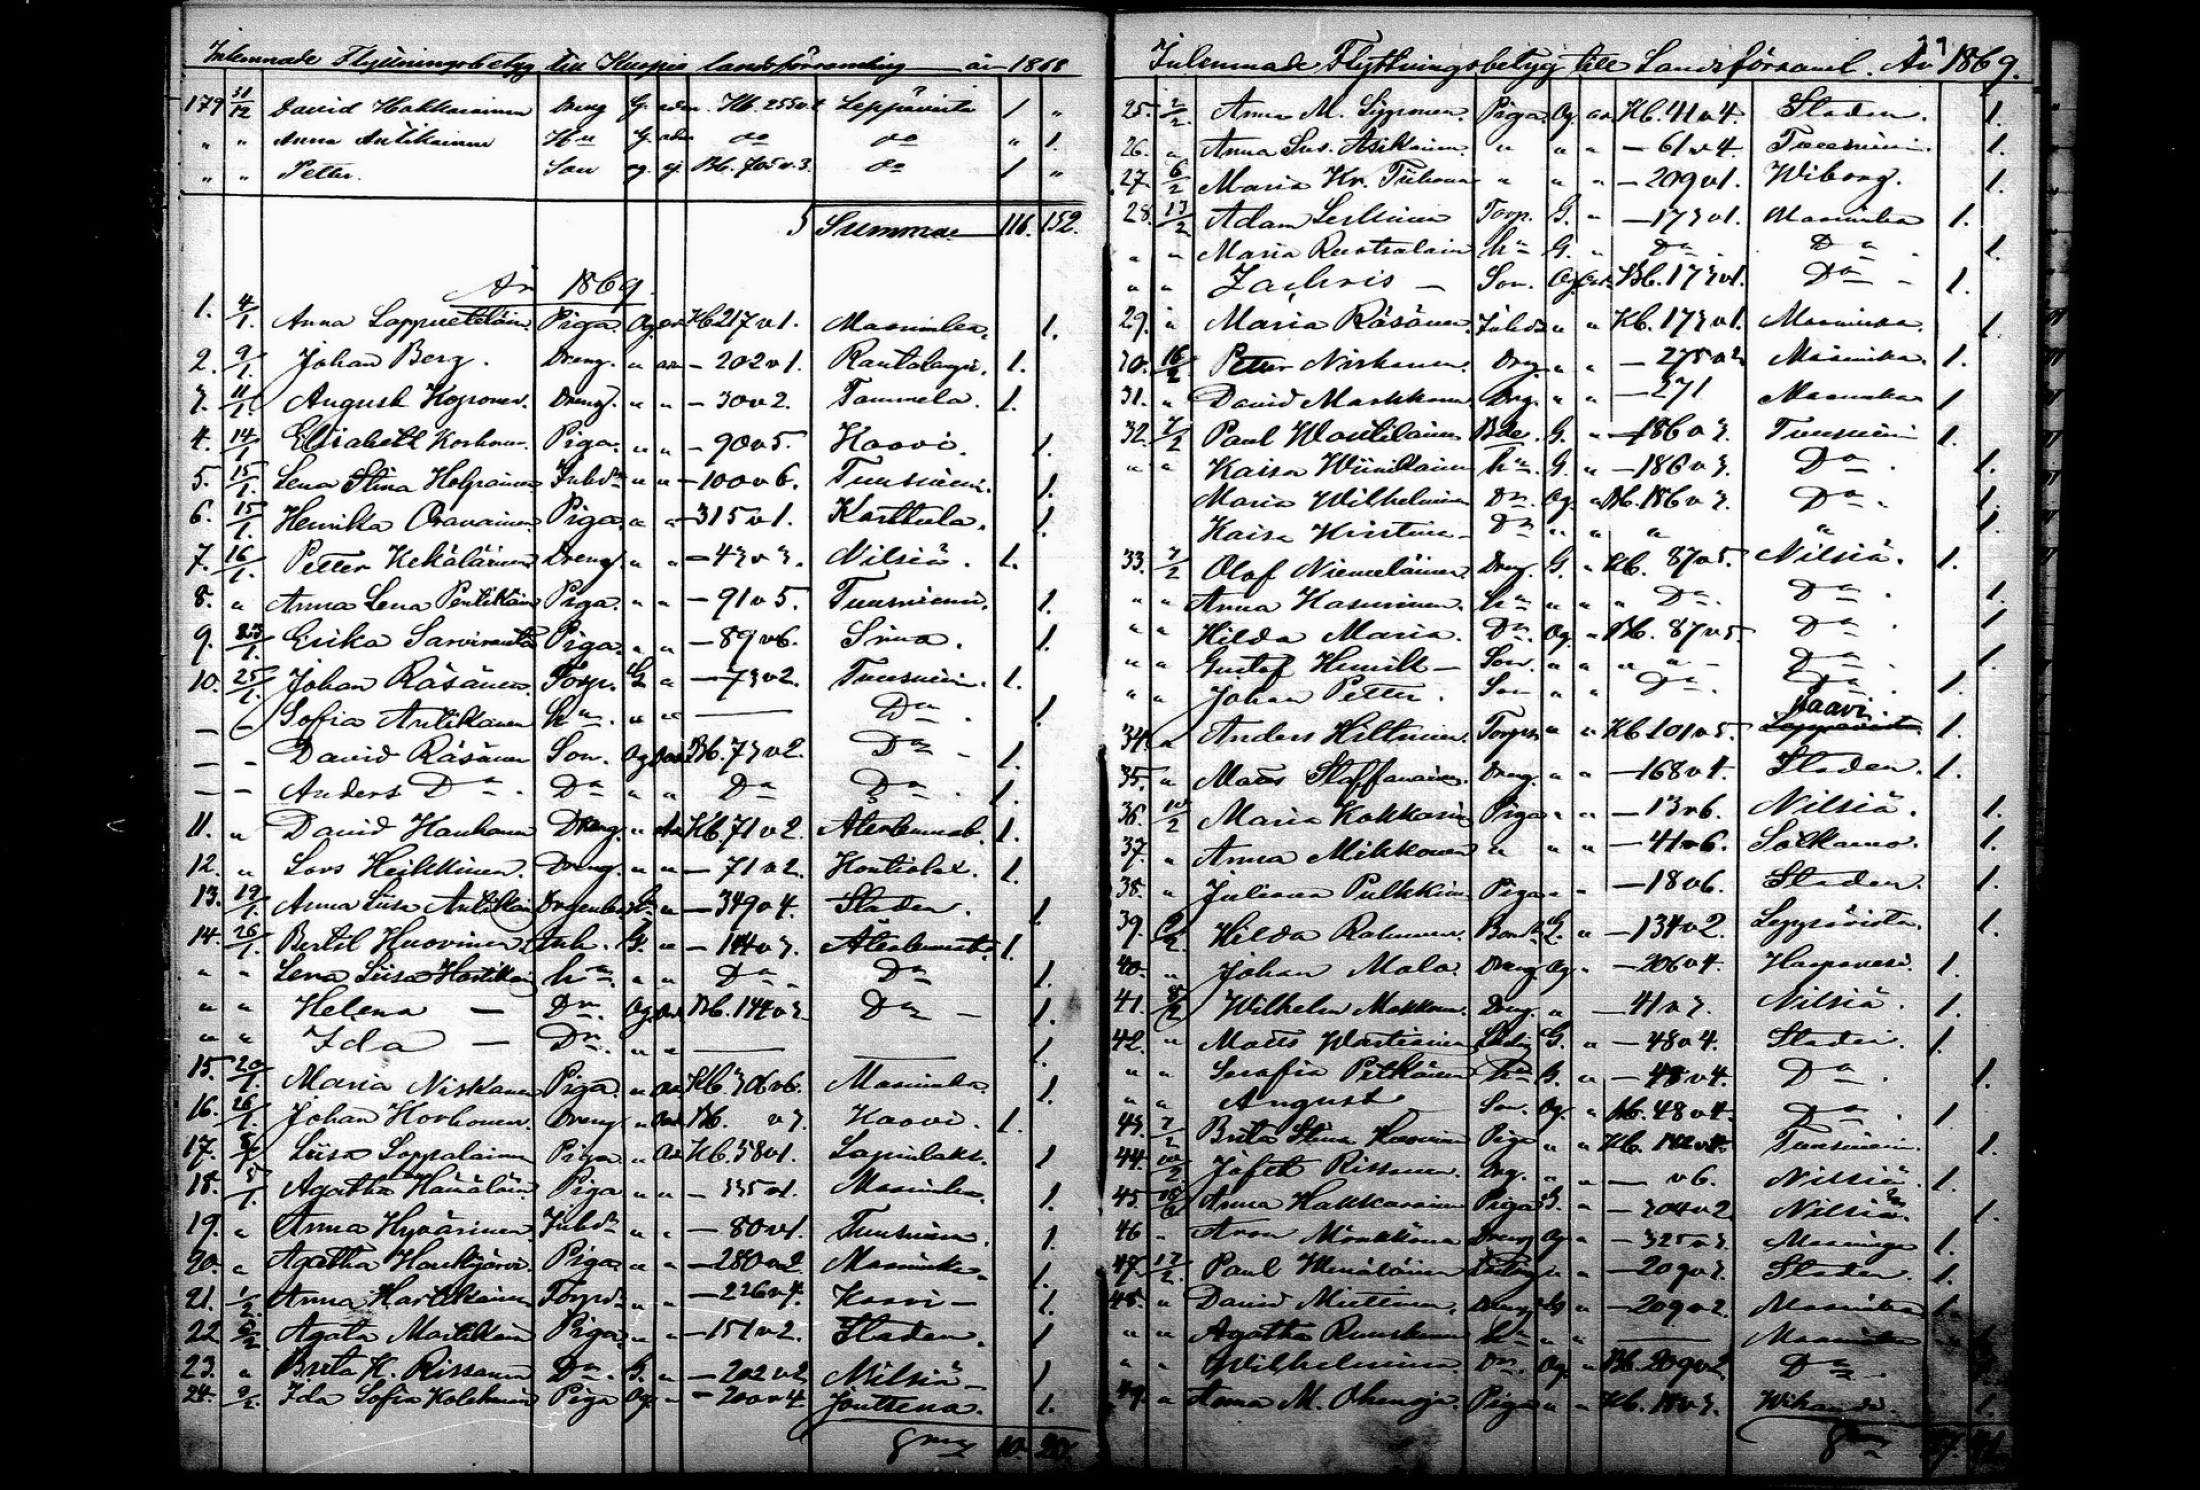 Inlemnade Flyttningsbetyg till Kuopio landsförsamling år 1868
179 31/12 David Hakkarainen Dreng G. adm. Kb. 255 v. Leppävirta 1 "
" " Anna Antikainen Hu G. adm do do " 1.
" " Petter. Son og. ej. Bb. 705 v. 3. do 1 "
Summa 116. 152.
År 1869.
1. 4/1. Anna Lappveteläin Piga. Og. Kb 217 v 1. Maaninka. 1.
2. 9/1. Johan Berg. Dreng. " adm - 202 v 1. Rautalampi. 1.
3. 11/1. August Koponen. Dreng. " " - 30 v 2. Tammela. 1.
4. 14/1 Elisabeth Korhonen Piga. " " - 90 v 5. Kaavi. 1.
5. 15/1. Lena Stina Holopainen Inhda " " - 100 v 6. Tuusniemi. 1.
6. 15/1. Henrika Oravainen Piga. " " - 315 v 1. Karttula. 1.
7. 16/1. Petter Kekäläinen Dreng " " - 43 v 3. Nilsiä. 1.
8. " Anna Lena Pentikäin Piga. " " - 91 v 5. Tuusniemi. 1.
9. Erika Sarviranta Piga. " " - 89 v 6. Simo. 1.
10. 25/1. Johan Räsänen. Torp. G " - 73 v 2. Tuusniemi. 1.
— Sofia Antikanen hu. " " — Do. 1.
— - David Räsänen Son. Og Bb. 73 v 2. Do - 1.
— - Anders Do. Do " " Do Do. 1.
11. " David Hanhonen Dreng. " Kb. 71 v 2. 1.
12. " Lars Heikkinen. Dreng. " " - 71 v 2. Kontiolax. 1.
13. 19/1. Anna Liisa Antikain G. " - 349 v 4. Staden. 1
14. 26/1. Bertil Huovinen Inh. G. " - 144 v 3. 1.
" " Lena Liisa Hartikain hu. " " Do. Do 1.
" " Helena — Dr. Og Bb. 144 v 3. Do - 1.
" " Ida — Dr. " " — — 1.
15. 20/1. Maria Niskanen Piga " Kb. 306 v 6. Maaninka. 1.
16. 26/1. Johan Korhonen. Dreng " Bb. v 3. Kaavi. 1.
17. Liisa Lappalainen Piga. " Kb. 58 v 1. Lapinlaks. 1
18. Agatha Hämäläin Piga " " - 335 v 1. Maaninka. 1.
19. " Anna Hyvärinen. Inhda " " - 80 v 1. Tuusniemi. 1.
20. " Agatha Haukijärvi. Piga " " - 280 v 2. Maaninka. 1.
21. 1/2. Anna Hartikainen Torpd. " " - 226 v 4. Kaavi - 1.
22 Agata Martikain Piga. " " - 151 v 2. Staden. 1
23. " Brita K. Rissanen Do. G. " - 202 v 2 Nilsiä - 1
24. Ida Sofia Kolehmain Piga Og. " - 200 v 4 Jouttena. 1.
10. 20.
Inlemnade Flyttningsbetyg till Landsförsaml. År 1869.
25. 2/2. Anna M. Sipponen. Piga. Og. Kb. 41 v 4. Staden. 1.
26. " Anna Sus. Asikainen " " " - 61 v 4. Tuusniemi. 1.
27. 6/2 Maria Kr. Tiihonen " " " - 209 v 1. Wiborg. 1.
28. 13/2 Adam Leskinen Torp. G. " - 173 v 1. Maaninka 1.
" " Maria Ruotsalain hu G. " Do. Do. 1.
" " Zachris — Son. Og Bb. 173 v 1. Do - 1.
29. " Maria Räsänen. Inhda " " Kb. 173 v 1. Maaninka. 1.
30. 16/2 Petter Niskanen. Drg. " " - 275 v 2 Maaninka. 1.
31. " David Markkanen Drg. " " - 271 Maaninka 1
32. 7/2 Paul Wartiainen Bde. G. " - 186 v 3. Tuusniemi 1.
" " Kaisa Wiinikainen hu. G. " - 186 v 3. Do. 1.
Maria Wilhelmina Dr. Og. " Bb. 186 v 3. Do. 1.
Kaisa Kristina - Dr " " " " 1.
33. 7/2 Olof Niemeläinen. Dreng. G. " Kb. 87 v 5. Nilsiä. 1.
" " Anna Kasurinen. hu " " " Do. Do. 1.
" " Hilda Maria. Dr. Og. " Bb. 87 v 5. Do. 1
" " Gustaf Henrik — Son. " " " " - Do. 1.
" " Johan Petter. Son " " Do. Do. 1
Kaavi.
34. " Anders Hiltunen. Torpson " " Kb 101 v 5. Leppävirta. 1.
35. " Matts Staffanainen. Dreng. " " - 168 v 4. Staden. 1.
36. 10/2 Maria Kokkarin Piga " " - 13 v 6. Nilsiä. 1.
37. " Anna Mikkonen " " " - 41 v 6. Sotkamo. 1.
38. " Juliana Pulkkin Piga " " - 18 v 6. Staden. 1.
39. Hilda Rahunen. G. " - 134 v 2. Leppävirta. 1.
40. " Johan Malo. Dreng Og. " - 206 v 4. Haapavesi. 1.
41. 8/2 Wilhelm Makkonen. Dreng. " - 41 v 3. Nilsiä. 1.
42. " Matts Wartiainen G. " - 48 v 4. Staden. 1.
" " Serafia Pitkänen hu G. " - 48 v 4. Do. 1.
" " August Son. Og. " Bb. 48 v 4. Do. 1
43. 7/2 Brita Stina Huovinen Piga " " Kb. Tuusniemi. 1.
44. 10/2 Jafet Rissanen. Drg. " " - v 6. Nilsiä. 1.
45 Anna Hakkarainen Piga G. " - 304 v 2 Nilsiä. 1.
46 - Aron Mönkkönen Dreng Og " - 325 v 3. Maaninga 1.
47. 17/2. Paul Hämäläinen " " - 209 v 3. Staden. 1.
48. " David Miettinen. Dreng G " - 209 v 2. Maaninka 1.
" " Agatha Ruuskanen hu " " — Maaninka 1
" " Wilhelmina Dr. Og. " Bb. 209 v 2 Do - 1
49. " Anna M. Ohenoja. Piga " " Kb. 18 v 3. Wihanti. 1.